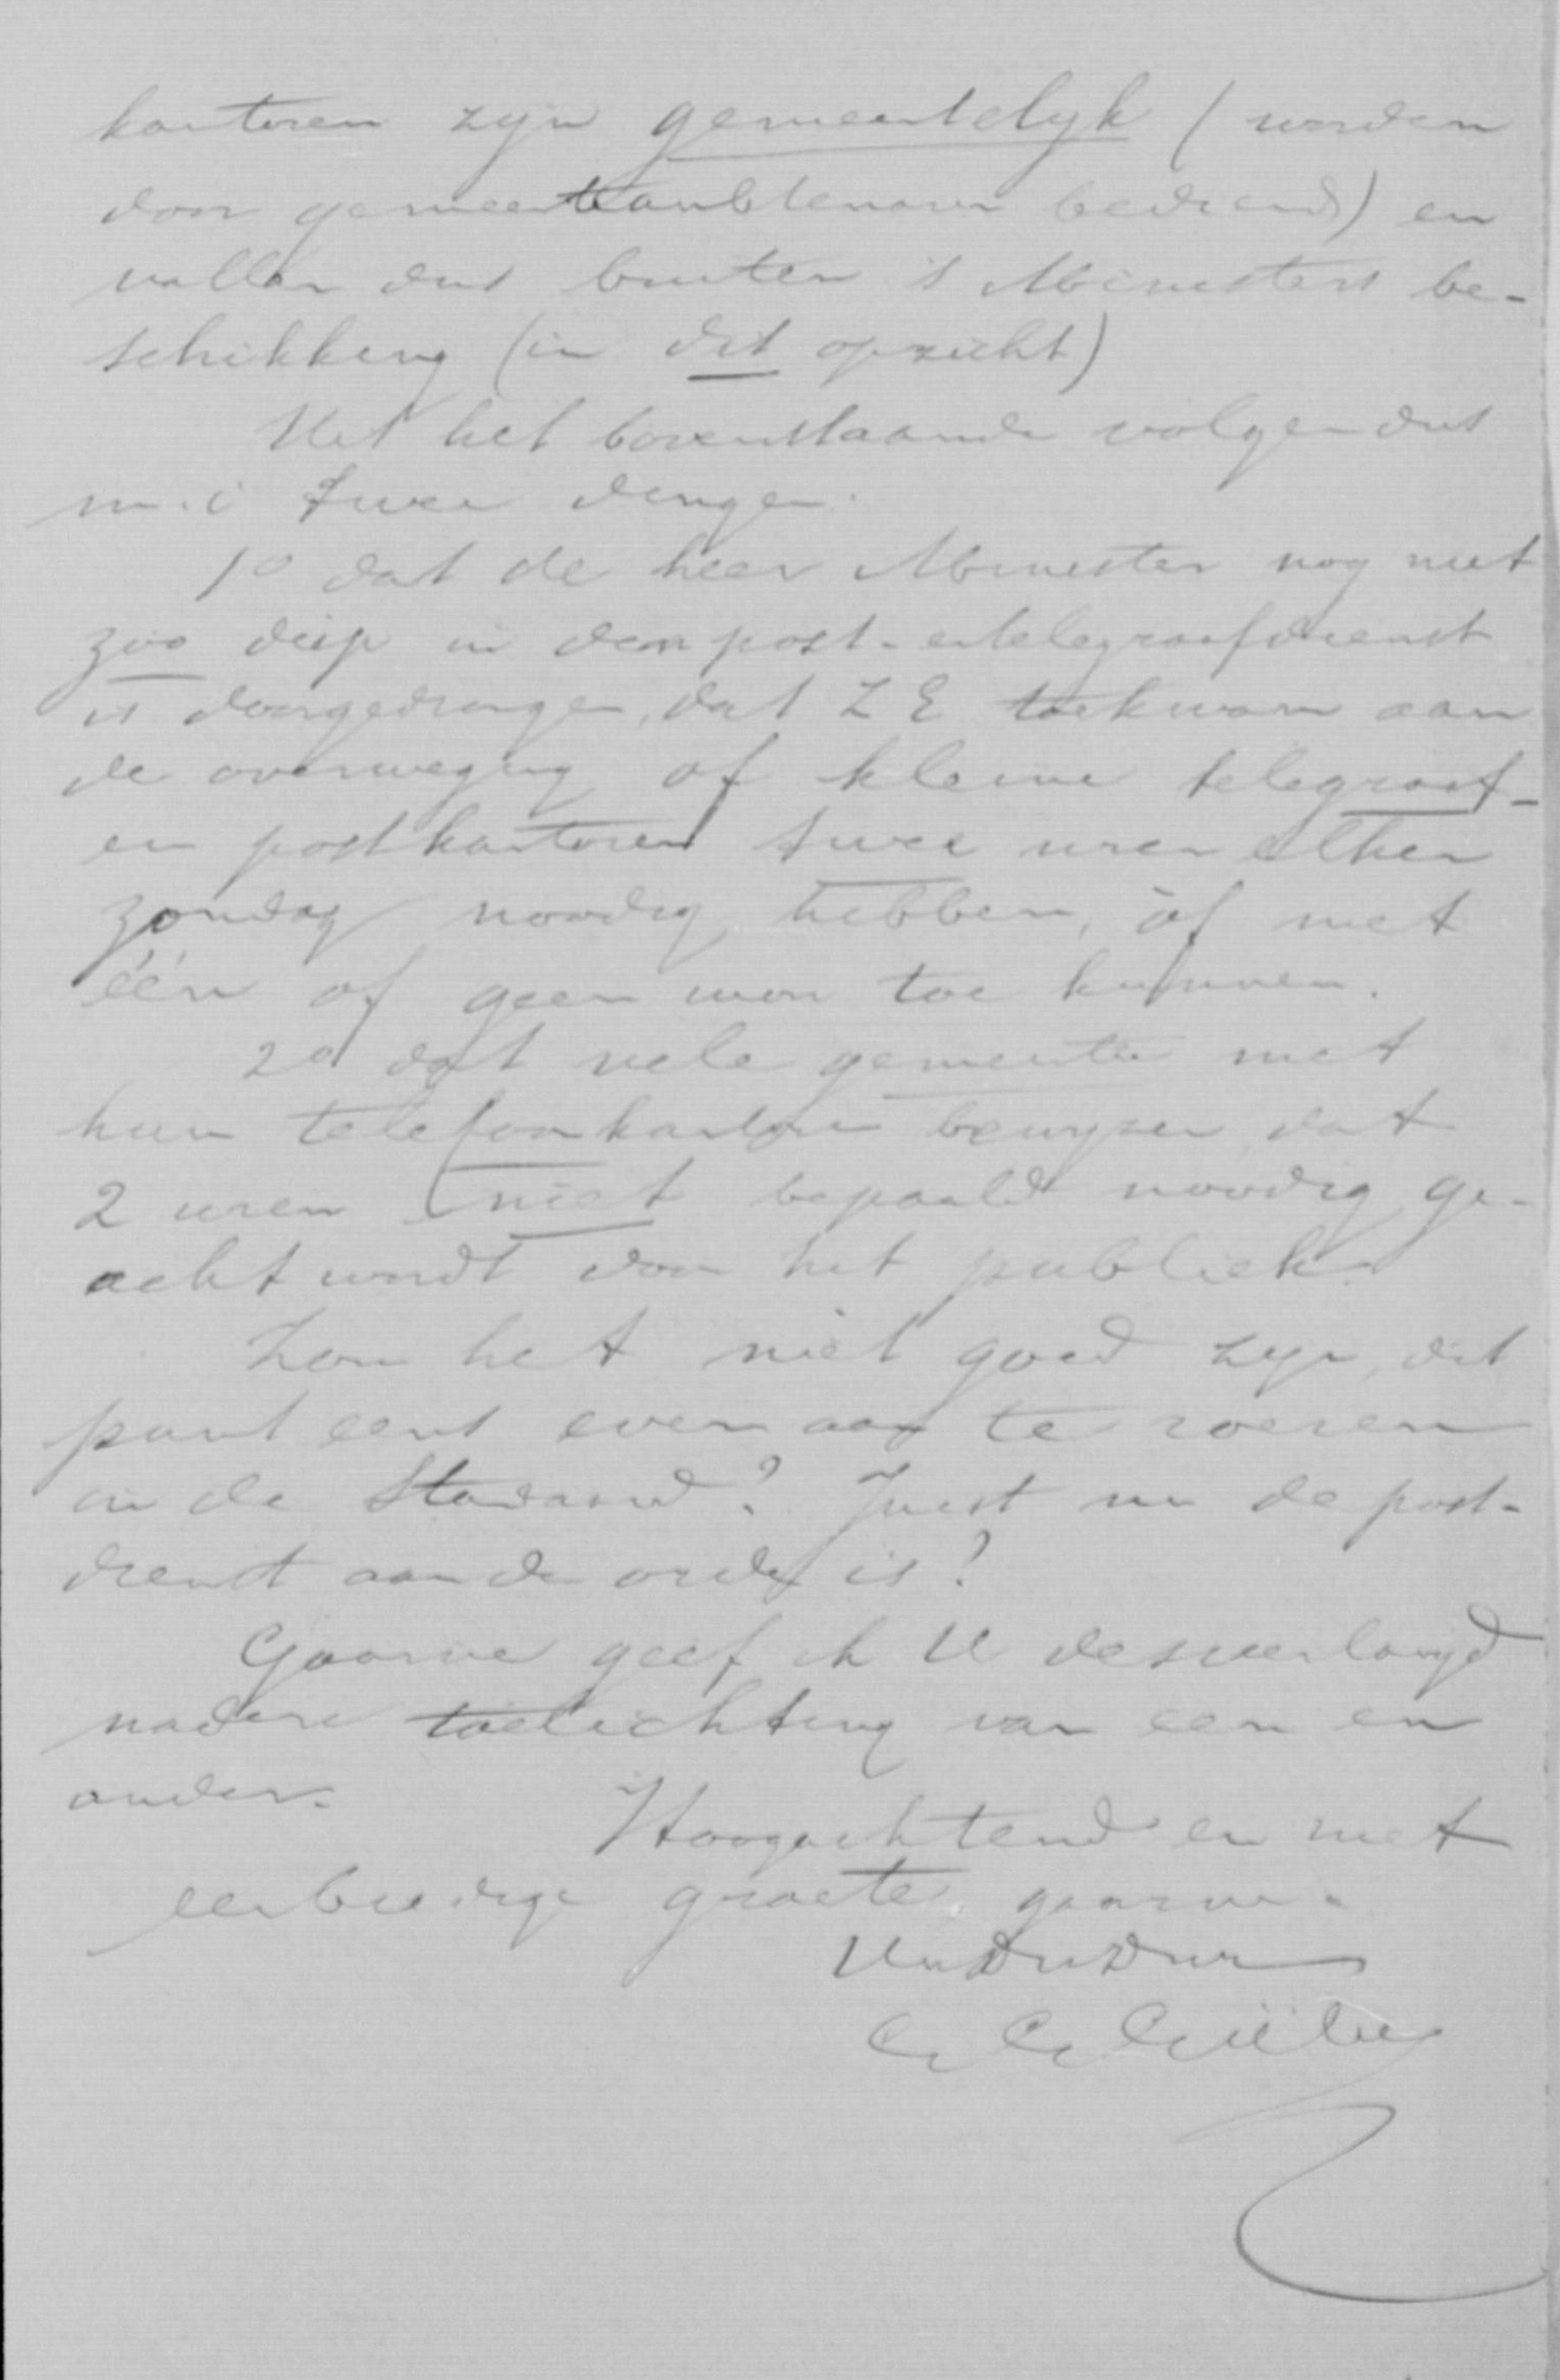 kantoren zijn gemeentelijk (worden
door gemeenteambtenaren bediend) en
vallen dus buiten 's Ministers be-
schikking (in dit opzicht)
Uit het bovenstaande volgen dus
m.i twee dingen.
1o dat de heer Minister nog niet
zoo diep in den post- en telegraafdienst
is doorgedrongen, dat Z E toekwam aan
de overweging of kleine telegraaf-
en postkantoren twee uren elken
zondag noodig hebben, òf met
één of geen uur toe kunnen.
2o dat vele gemeenten met
hun telefoonkantoren bewijzen, dat
2 uren niet bepaald noodig ge-
acht wordt door het publiek.
Zou het niet goed zijn, dit
punt eens even aan te roeren
in de Standaard? Juist nu de post-
dienst aan de orde is?
Gaarne geef ik U desverlangd
nadere toelichting van een en
ander.
Hoogachtend en met
eerbiedige groete, gaarne
Uw Dw Dr